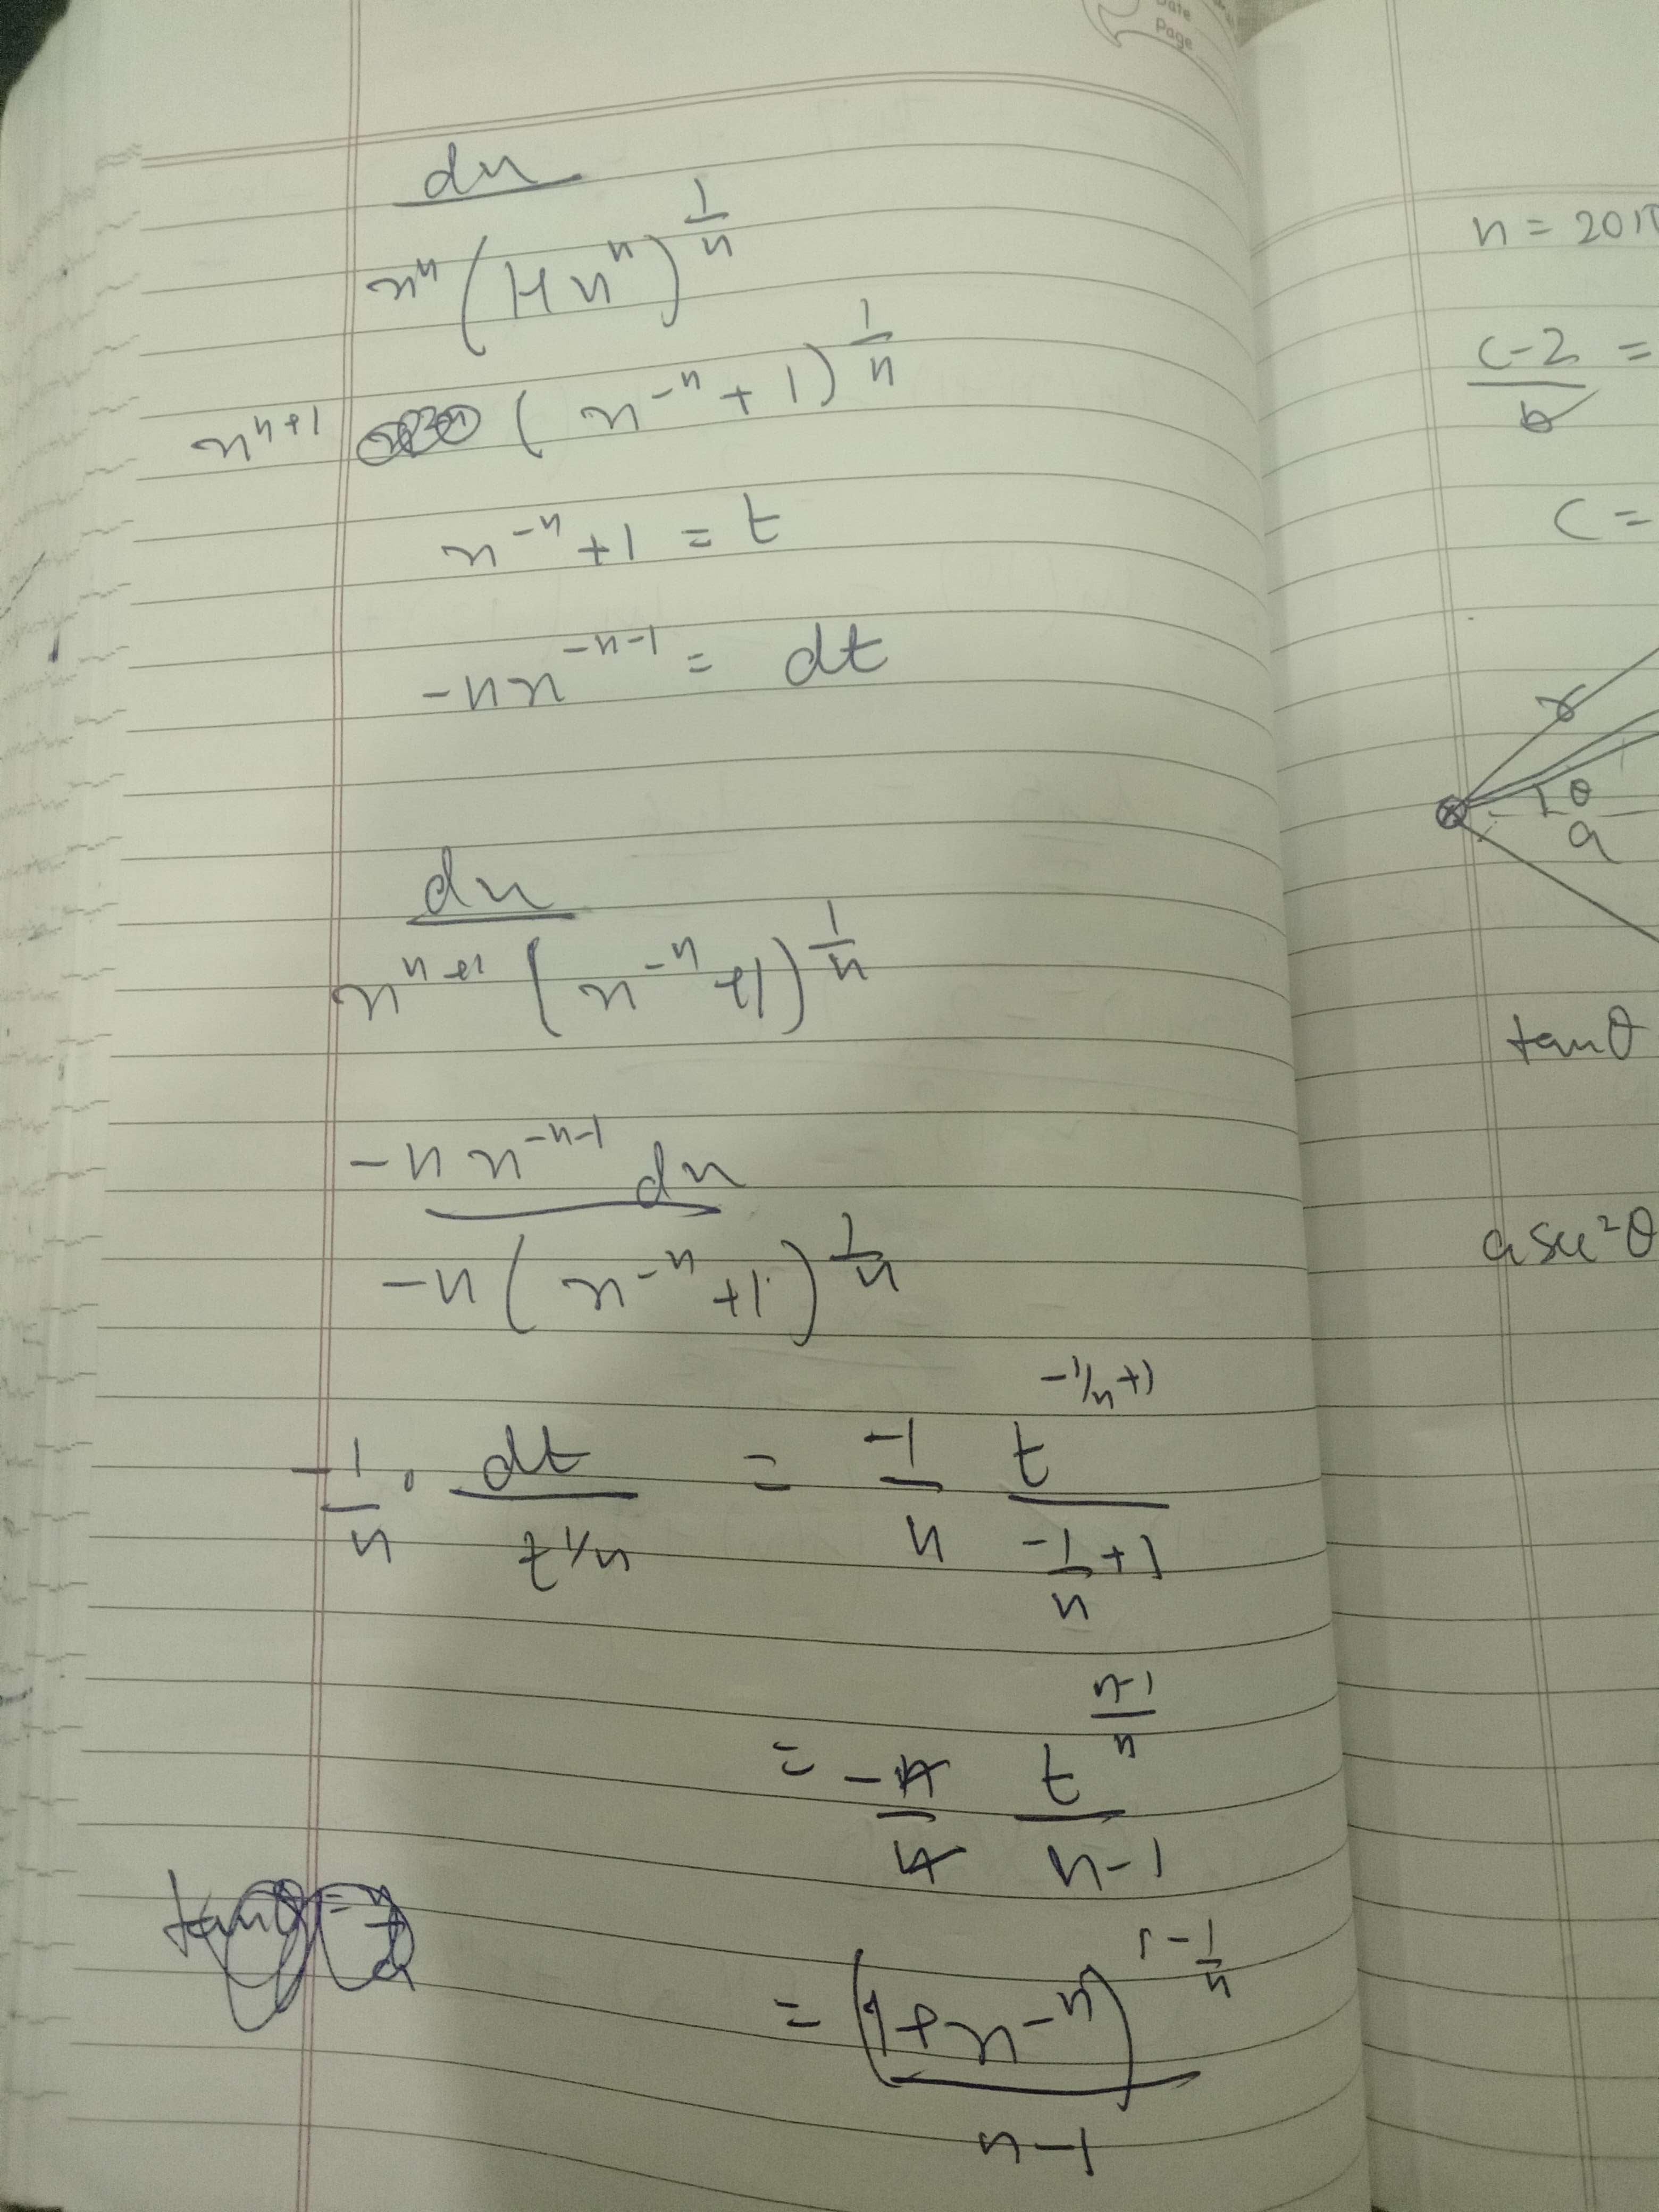 Date
Page
dx
x^n (1+x^n)^{1/n}
x^{n+1} (x^{-n} + 1)^{1/n}
x^{-n} + 1 = t
-n x^{-n-1} = dt
dx
x^{n+1} (x^{-n} + 1)^{1/n}
-n x^{-n-1} dx
-n (x^{-n} + 1)^{1/n}
-1/n · dt / t^{1/n} = -1/n t^{-1/n+1} / (-1/n + 1)
= -n/n t^{(n-1)/n} / (n-1)
= (1 + x^{-n})^{1-1/n}
n-1
tanθ =
c-2 =
b
c =
r
θ
a
tanθ
a sec²θ